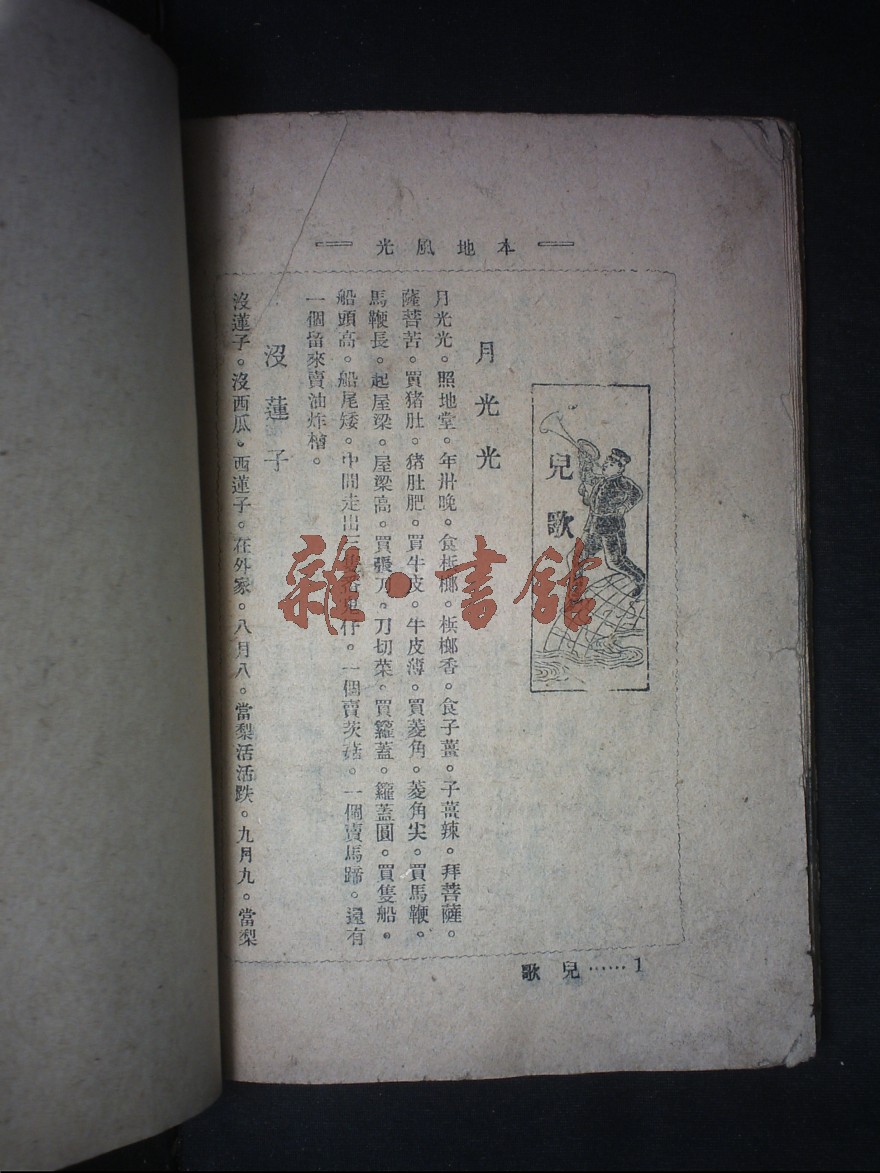 本地風光
兒歌
月光光
月光光。照地堂。年卅晚。食梹榔。梹榔香。食子薑。子薑辣。拜菩薩。
薩菩苦。買猪肚。猪肚肥。買牛皮。牛皮薄。買菱角。菱角尖。買馬鞭。
馬鞭長。起屋梁。屋梁高。買張刀。刀切菜。買籮蓋。籮蓋圓。買隻船。
船頭高。船尾矮。中間走出三仔。一個賣茨菇。一個賣馬蹄。還有
一個留來賣油炸檜。
沒蓮子
沒蓮子。沒西瓜。西蓮子。在外家。八月八。當梨活活跌。九月九。當梨
兒歌……1
雜·書館